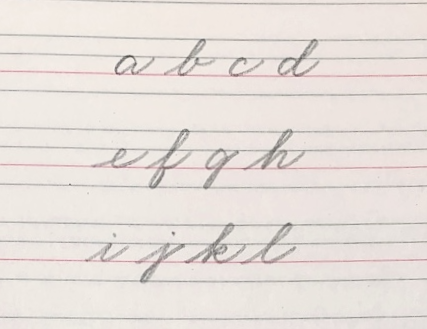 a b c d
e f g h
i j k l